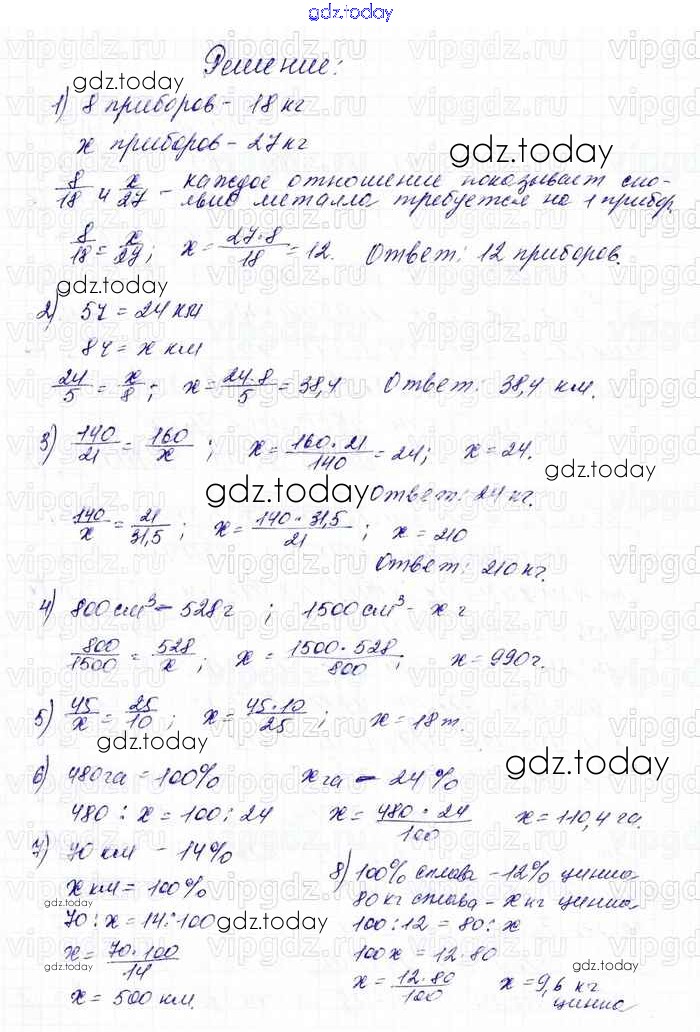 gdz.today
Решение:
1) 8 приборов - 18 кг
x приборов - 27 кг
8/18 и x/27 - каждое отношение показывает ско-
лько металла требуется на 1 прибор.
8/18 = x/27; x = 27·8/18 = 12. Ответ: 12 приборов.
2) 5ч = 24 км
8ч = x км
24/5 = x/8; x = 24·8/5 = 38,4 Ответ: 38,4 км.
3) 140/21 = 160/x; x = 160·21/140 = 24; x = 24.
Ответ: 24 кг.
140/x = 21/31,5; x = 140·31,5/21; x = 210
Ответ: 210 кг.
4) 800 см³ - 528 г; 1500 см³ - x г
800/1500 = 528/x; x = 1500·528/800; x = 990 г.
5) 45/x = 25/10; x = 45·10/25; x = 18 т.
6) 480 га = 100% x га - 24%
480 : x = 100 : 24 x = 480·24/100 x = 110,4 га.
7) 70 км - 14%
x км = 100%
70 : x = 14 : 100
x = 70·100/14
x = 500 км.
8) 100% сплава - 12% цинка
80 кг сплава - x кг цинка
100 : 12 = 80 : x
100x = 12·80
x = 12·80/100 x = 9,6 кг
цинка